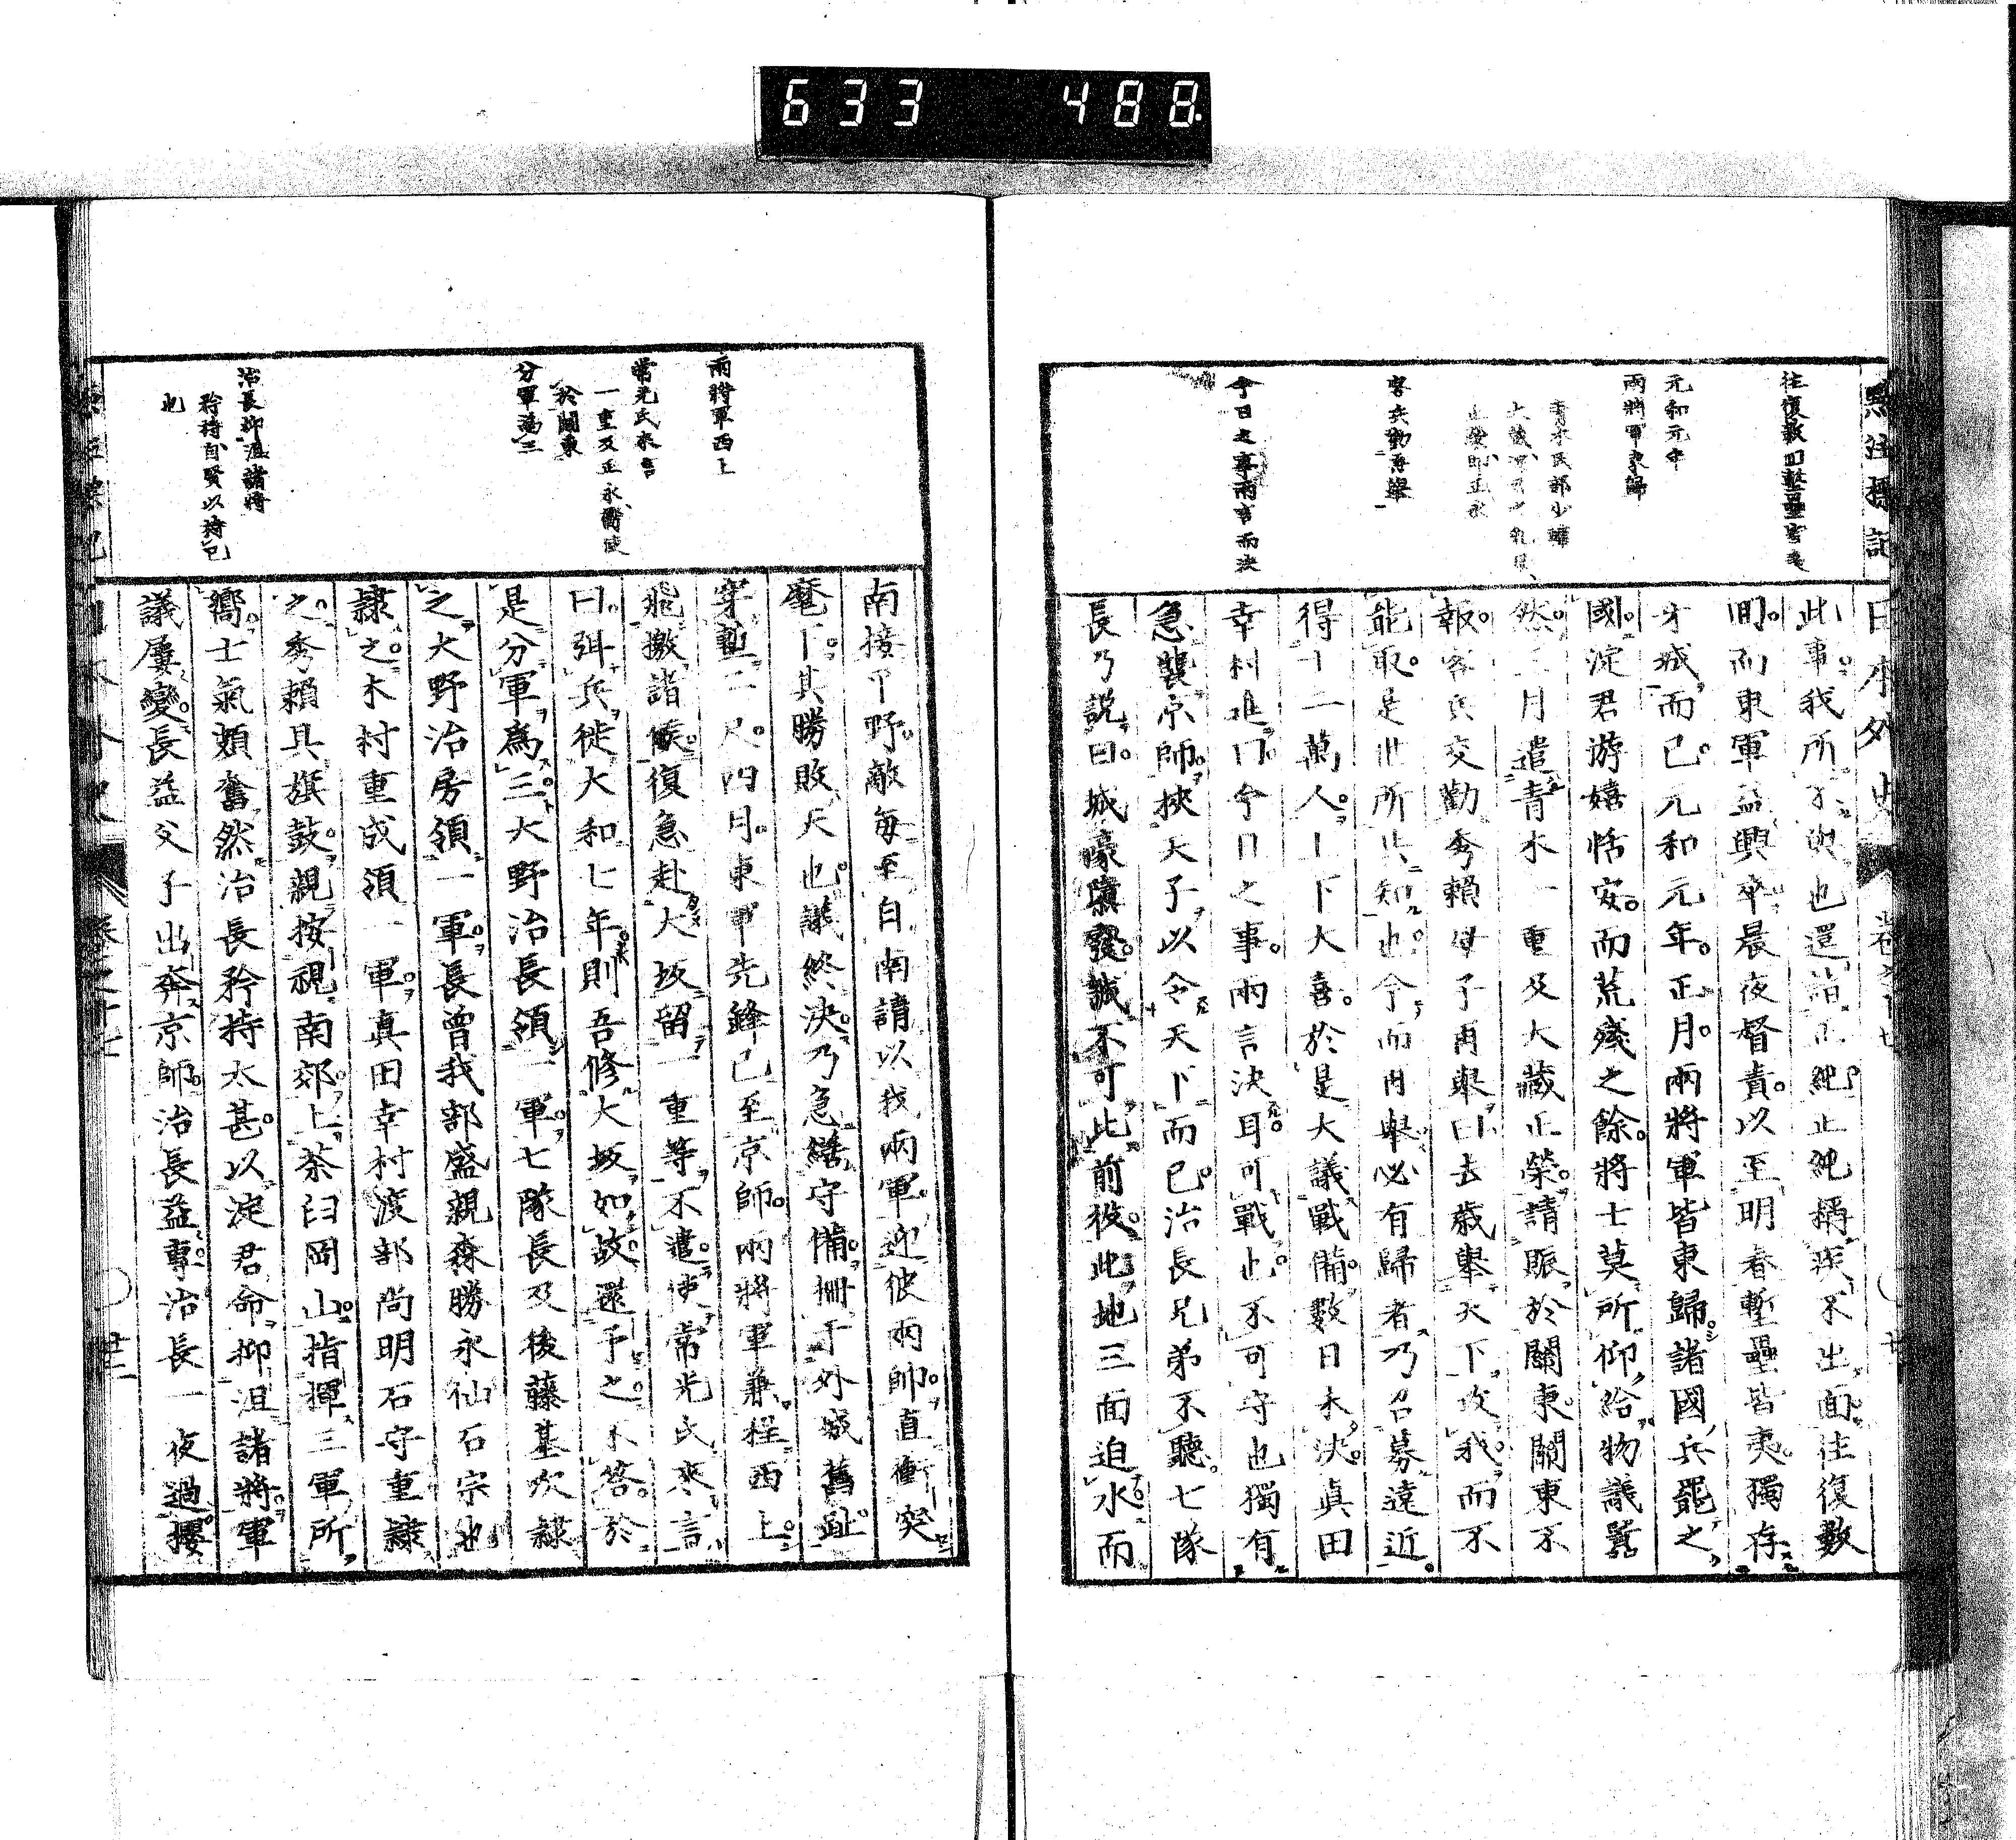 633 488
點註標記
日本外史
往復數
元和元年
兩將軍東歸
青木民部少輔
客兵勸再擧
今日之事兩言而決
此事我所不與也還詰正純正純稱疾不出面往復數
間而東軍益興卒晨夜督責以至明春塹壘皆夷獨存
牙城而已元和元年正月兩將軍皆東歸諸國兵罷之
國淀君游嬉恬安而荒殘之餘將士莫所仰給物議囂
然三月遣青木一重及大藏正榮請賑於關東關東不
報客兵交勸秀賴母子再擧曰去歲擧天下攻我而不
能取是世所共知也今而再擧必有歸者乃召募遠近
得十二萬人上下大喜於是大議戰備數日未決眞田
幸村進曰今日之事兩言決耳可戰也不可守也獨有
急襲京師挾天子以令天下而已治長兄弟不聽七隊
長乃説曰城濠隳廢誠不可比前役此地三面迫水而
兩將軍西上
常光氏來言
一重及正永嘗使
於關東
分軍爲三
治長抑沮諸將
矜持自賢以持己
也
南接平野敵每至自南請以我兩軍迎彼兩帥直衝突
麾下其勝敗天也議終決乃急繕守備柵于外城舊趾
穿塹二尺四月東軍先鋒已至京師兩將軍兼程西上
飛檄諸侯復急赴大坂留一重等不遣使常光氏來言
曰弭兵徙大和七年則吾修大坂如故還予之不答於
是分軍爲三大野治長領一軍七隊長及後藤基次隸
之大野治房領一軍長曾我部盛親森勝永仙石宗也
隸之木村重成領一軍真田幸村渡部尚明石守重隸
之秀賴具旗鼓親按視南郊上茶臼岡山指揮三軍所
嚮士氣頗奮然治長矜持太甚以淀君命抑沮諸將軍
議屢變長益父子出奔京師治長益專治長一夜過櫻